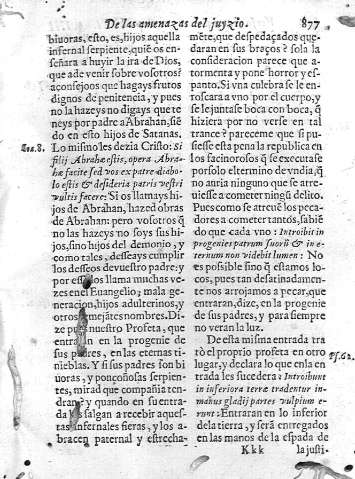 De las amenazas del juyzio. 877
biuoras, esto, es, hijos aquella
infernal serpiente, quiẽ os en-
señara a huyir la ira de Dios,
que ade venir sobre vosotros?
acõsejoos que hagays frutos
dignos de penitencia, y pues
no la hazeys no digays que te-
neys por padre a Abrahán, siẽ
do en esto hijos de Satanas.
Lo mismo les dezia Cristo: Si
filij Abrahæ estis, opera Abra-
hæ facite sed vos ex patre diabo-
lo estis & desideria patris vestri
vultis facere: Si os llamays hi-
jos de Abrahan, hazed obras
de Abrahan: pero vosotros q̃
no las hazeys no soys sus hi-
jos, sino hijos del demonio, y
como tales, desseays cumplir
los desseos de vuestro padre: y
por esto los llama muchas ve-
zes en el Euangelio; mala ge-
neracion, hijos adulterinos, y
otros semejãtes nombres. Di-
ze pues nuestro Profeta, que
entraran en la progenie de
sus padres, en las eternas ti-
nieblas. Y si sus padres son bi
uoras, y ponçoñosas serpien-
tes, mirad que compañia ten-
dran? y quando en su entra-
da salgan a recebir aques-
tas infernales fieras, y los a-
bracen paternal y estrecha-
mẽte, que despedaçados que-
daran en sus braços? sola la
consideracion parece que a-
tormenta y pone horror y es-
panto. Si vna culebra se le en-
roscara a vno por el cuerpo, y
se le juntase boca con boca, q̃
hiziera por no verse en tal
trance? pareceme que si pu-
siesse esta pena la republica en
los facinorosos q̃ se executase
por solo el termino de vn dia, q̃
no antia ninguno que se atre-
uiesse a cometer ningũ delito.
Pues como se atreuẽ los pec-
cadores a cometer tantos, sabiẽ
do que cada vno: Introibit in
progenies patrum suorũ & in e-
ternum non videbit lumen: No
es possible sino q̃ estamos lo-
cos, pues tan desatinadamen-
te nos arrojamos a pecar, que
entraran, dize, en la progenie
de sus padres, y para siempre
no veran la luz.
De esta misma entrada tra
tò el proprio profeta en otro
lugar, y declara lo que en la en
trada les sucedera: Introibunt
in inferiora terræ tradentur in
manus gladij partes vulpium e-
runt: Entraran en lo inferior
de la tierra, y serã entregados
en las manos de la espada de
Kkk la justi-
Ioa. 8.
Ps. 62.